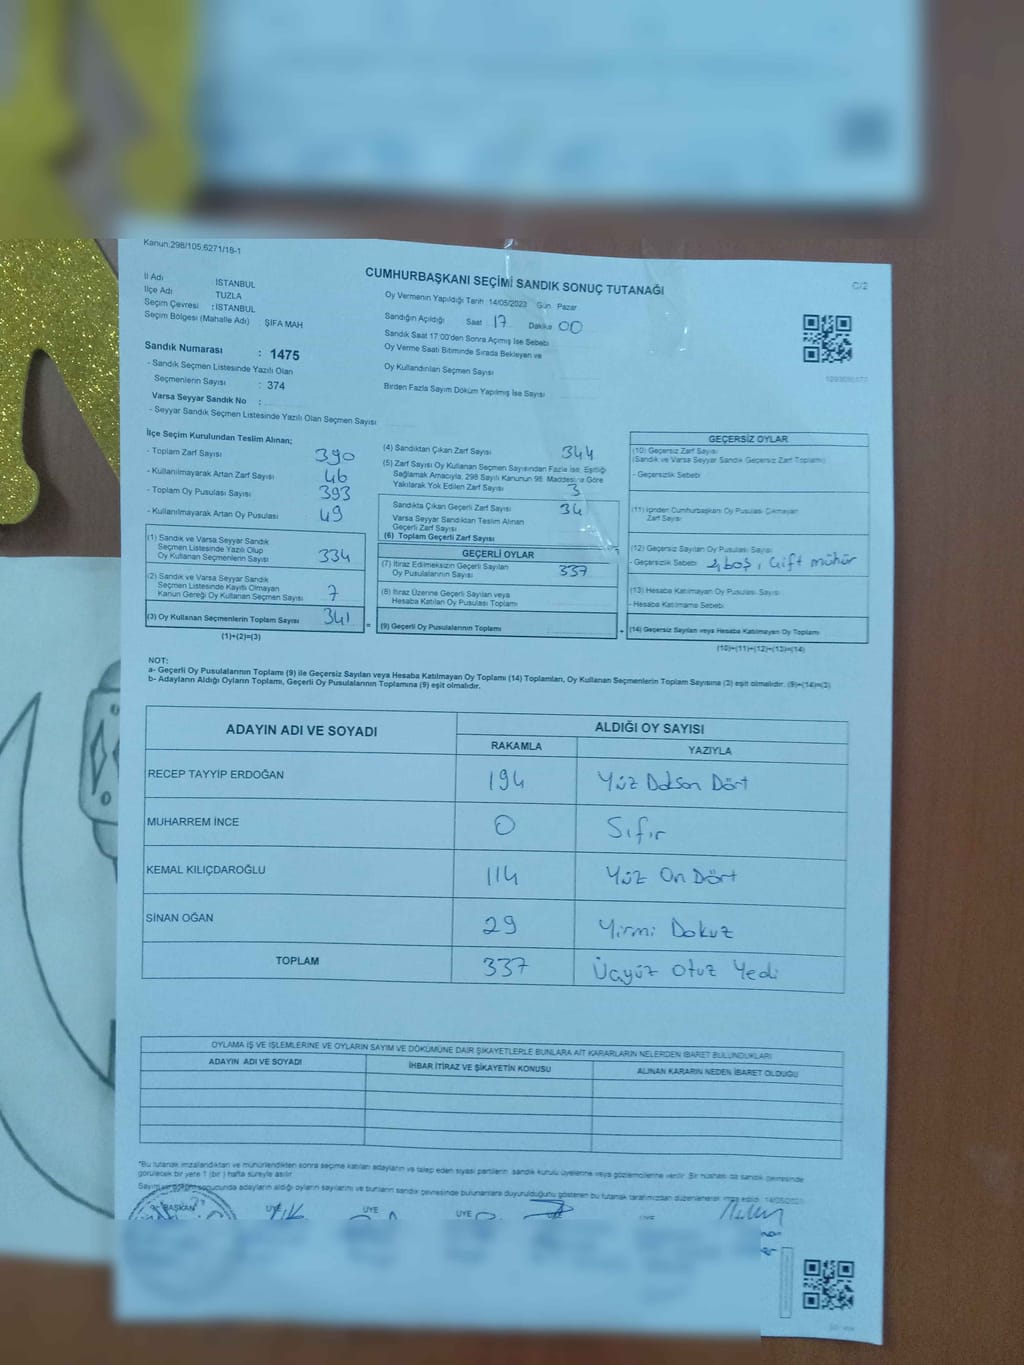 Kanun;298/105;6271/18-1
CUMHURBAŞKANI SEÇİMİ SANDIK SONUÇ TUTANAĞI
C/2
İl Adı İSTANBUL
İlçe Adı TUZLA
Seçim Çevresi : İSTANBUL
Seçim Bölgesi (Mahalle Adı) ŞİFA MAH
Sandık Numarası : 1475
- Sandık Seçmen Listesinde Yazılı Olan
Seçmenlerin Sayısı : 374
Varsa Seyyar Sandık No :
- Seyyar Sandık Seçmen Listesinde Yazılı Olan Seçmen Sayısı
Oy Vermenin Yapıldığı Tarih :14/05/2023 Gün Pazar
Sandığın Açıldığı Saat 17 Dakika 00
Sandık Saat 17:00'den Sonra Açımış İse Sebebi
Oy Verme Saati Bitiminde Sırada Bekleyen ve
Oy Kullandırılan Seçmen Sayısı
Birden Fazla Sayım Döküm Yapılmış İse Sayısı
İlçe Seçim Kurulundan Teslim Alınan;
- Toplam Zarf Sayısı 390
- Kullanılmayarak Artan Zarf Sayısı 46
- Toplam Oy Pusulası Sayısı 393
- Kullanılmayarak Artan Oy Pusulası 49
(1) Sandık ve Varsa Seyyar Sandık
Seçmen Listesinde Yazılı Olup
Oy Kullanan Seçmenlerin Sayısı 334
(2) Sandık ve Varsa Seyyar Sandık
Seçmen Listesinde Kayıtlı Olmayan
Kanun Gereği Oy Kullanan Seçmen Sayısı 7
(3) Oy Kullanan Seçmenlerin Toplam Sayısı 341 =
(1)+(2)=(3)
(4) Sandıktan Çıkan Zarf Sayısı 344
(5) Zarf Sayısı Oy Kullanan Seçmen Sayısından Fazla ise, Eşitliği
Sağlamak Amacıyla, 298 Sayılı Kanunun 98. Maddesine Göre
Yakılarak Yok Edilen Zarf Sayısı 3
Sandıkta Çıkan Geçerli Zarf Sayısı 34
Varsa Seyyar Sandıktan Teslim Alınan
Geçerli Zarf Sayısı
(6) Toplam Geçerli Zarf Sayısı
GEÇERLİ OYLAR
(7) İtiraz Edilmeksizin Geçerli Sayılan
Oy Pusulalarının Sayısı 337
(8) İtiraz Üzerine Geçerli Sayılan veya
Hesaba Katılan Oy Pusulası Toplamı
(9) Geçerli Oy Pusulalarının Toplamı +
GEÇERSİZ OYLAR
(10) Geçersiz Zarf Sayısı
(Sandık ve Varsa Seyyar Sandık Geçersiz Zarf Toplamı)
- Geçersizlik Sebebi
(11) İçinden Cumhurbaşkanı Oy Pusulası Çıkmayan
Zarf Sayısı
(12) Geçersiz Sayılan Oy Pusulası Sayısı
- Geçersizlik Sebebi 2 boş, çift mühür
(13) Hesaba Katılmayan Oy Pusulası Sayısı
- Hesaba Katılmama Sebebi
(14) Geçersiz Sayılan veya Hesaba Katılmayan Oy Toplamı
(10)+(11)+(12)+(13)=(14)
NOT:
a- Geçerli Oy Pusulalarının Toplamı (9) ile Geçersiz Sayılan veya Hesaba Katılmayan Oy Toplamı (14) Toplamları, Oy Kullanan Seçmenlerin Toplam Sayısına (3) eşit olmalıdır. (9)+(14)=(3)
b- Adayların Aldığı Oyların Toplamı, Geçerli Oy Pusulalarının Toplamına (9) eşit olmalıdır.
ADAYIN ADI VE SOYADI ALDIĞI OY SAYISI
RAKAMLA YAZIYLA
RECEP TAYYİP ERDOĞAN 194 Yüz Doksan Dört
MUHARREM İNCE 0 Sıfır
KEMAL KILIÇDAROĞLU 114 Yüz On Dört
SİNAN OĞAN 29 Yirmi Dokuz
TOPLAM 337 Üçyüz Otuz Yedi
OYLAMA İŞ VE İŞLEMLERİNE VE OYLARIN SAYIM VE DÖKÜMÜNE DAİR ŞİKAYETLERLE BUNLARA AİT KARARLARIN NELERDEN İBARET BULUNDUKLARI
ADAYIN ADI VE SOYADI İHBAR İTİRAZ VE ŞİKAYETİN KONUSU ALINAN KARARIN NEDEN İBARET OLDUĞU
*Bu tutanak imzalandıktan ve mühürlendikten sonra seçime katılan adayların ve talep eden siyasi partilerin sandık kurulu üyelerine veya gözlemcilerine verilir. Bir nüshası da sandık çevresinde
görülecek bir yere 1 (bir) hafta süreyle asılır.
Sayım ve döküm sonucunda adayların aldığı oyların sayılarını ve bunların sandık çevresinde bulunanlara duyurulduğunu gösteren bu tutanak tarafımızdan düzenlenerek imza edildi.
BAŞKAN ÜYE ÜYE ÜYE